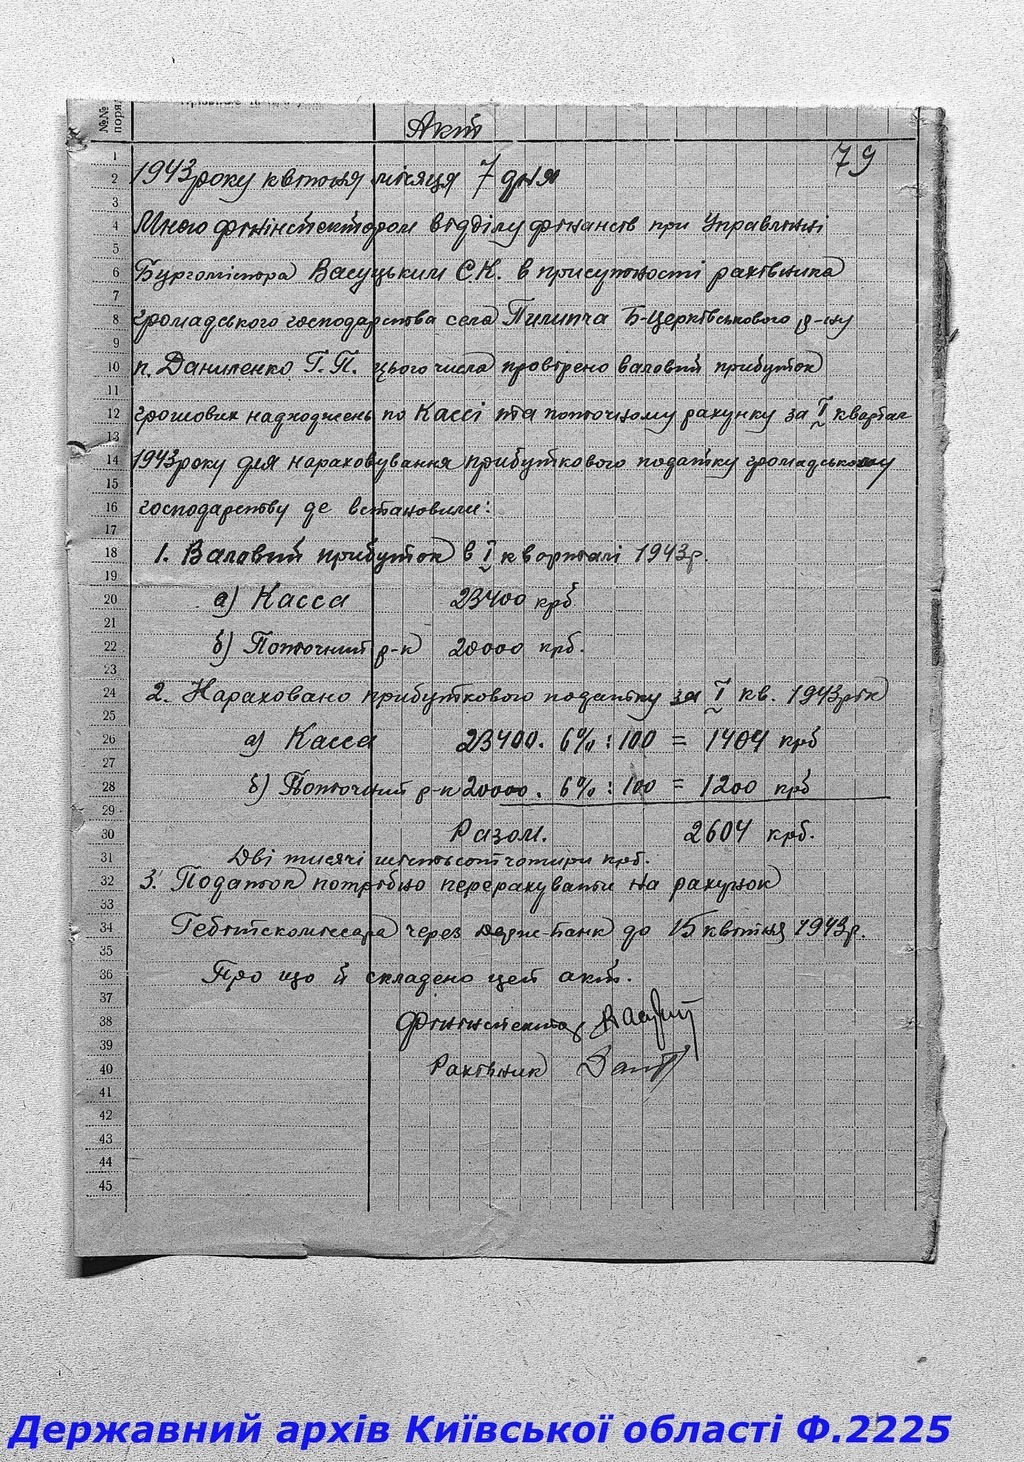 №№
поряд
Акт
79
1943 року квітня місяця 7 дня
Мною фінінспектором відділу фінансів при Управлінні
Бургомістра Васуцьким С.К. в присутності рахівника
громадського господарства села Пилипча Б-Церківського р-ну
п. Даниленко Г.П. цього числа провірено валовий прибуток
грошових надходжень по Кассі та поточному рахунку за I квартал
1943 року для нараховування прибуткового податку громадському
господарству де встановили:
1. Валовий прибуток в I кварталі 1943 р.
а) Касса 23400 крб
б) Поточний р-к 20000 крб.
2. Нараховано прибуткового податку за I кв. 1943 рік
а) Касса 23400. 6% : 100 = 1404 крб
б) Поточний р-к 20000. 6% : 100 = 1200 крб
Разом. 2604 крб.
Дві тисячі шістьсот чотири крб.
3. Податок потрібно перерахувати на рахунок
Гебітскомісара через Держ-банк до 15 квітня 1943 р.
Про що й складено цей акт.
Фінінспектор
Рахівник
1
2
3
4
5
6
7
8
9
10
11
12
13
14
15
16
17
18
19
20
21
22
23
24
25
26
27
28
29
30
31
32
33
34
35
36
37
38
39
40
41
42
43
44
45
Державний архів Київської області Ф.2225